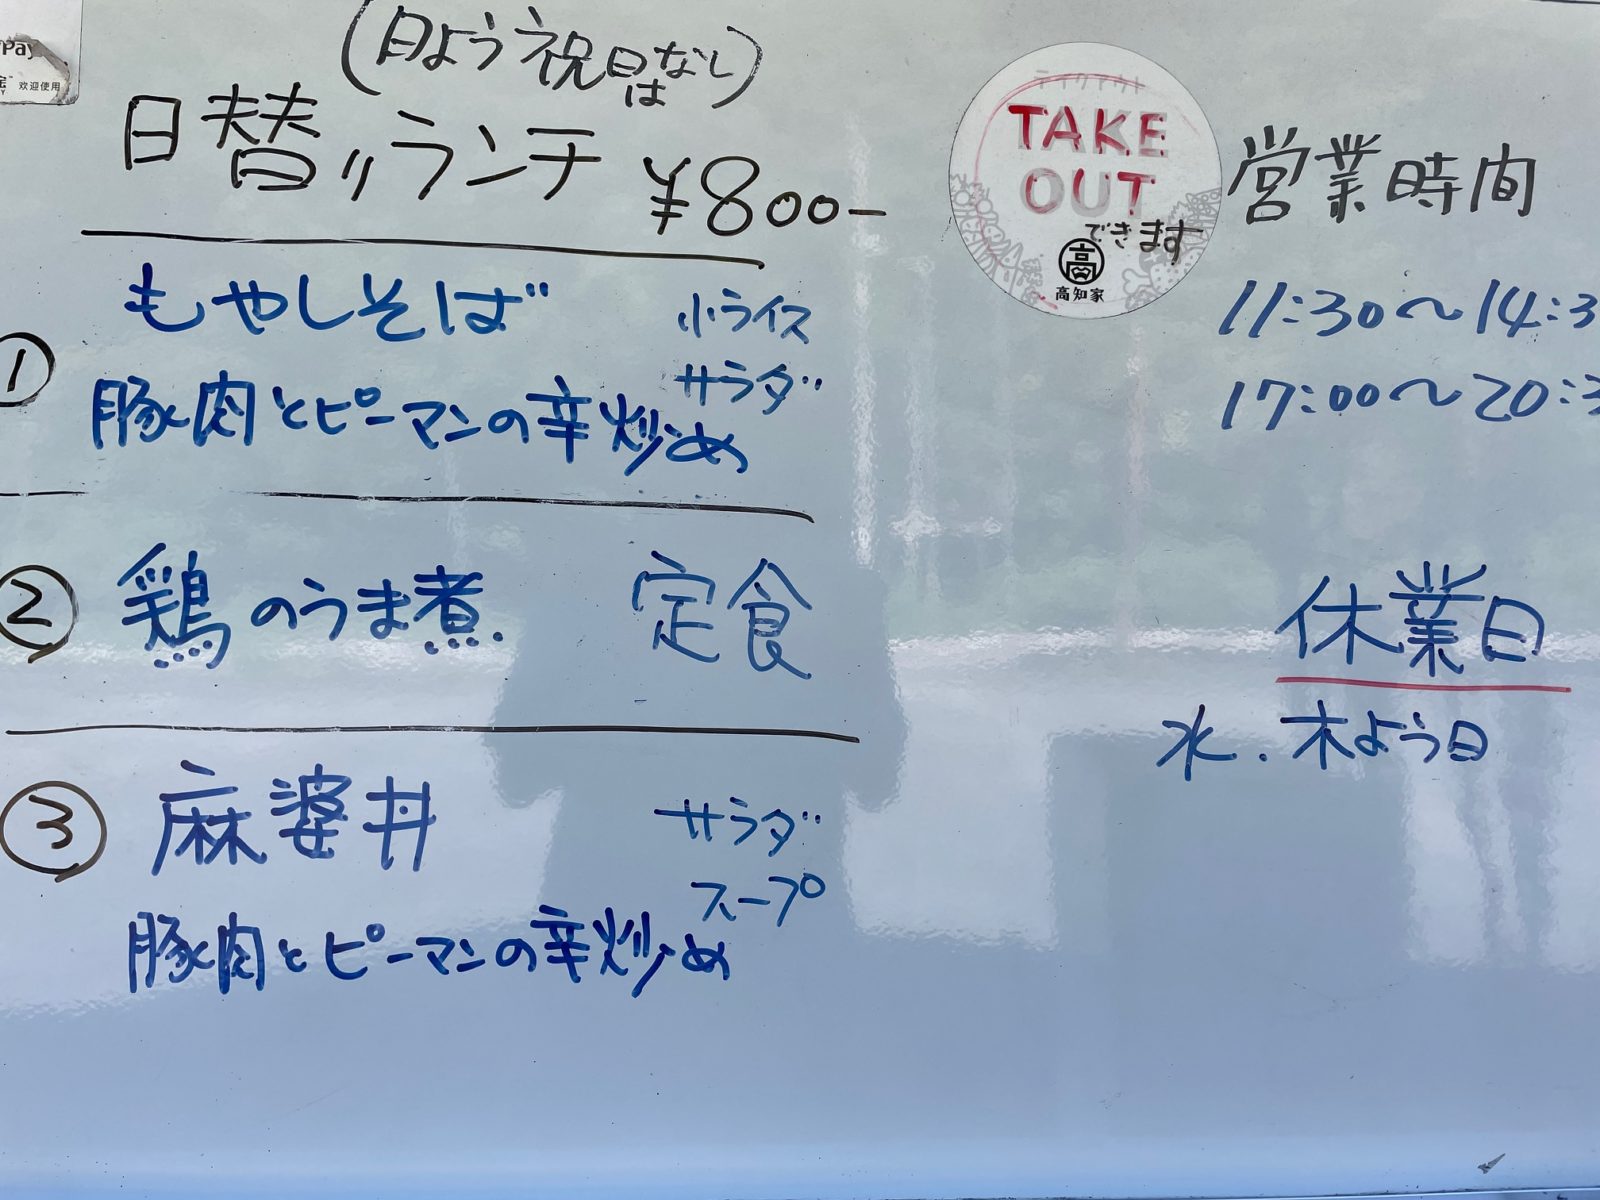 Pay
欢迎使用
(日よう祝日はなし)
日替りランチ ¥800-
① もやしそば 小ライス
サラダ
豚肉とピーマンの辛炒め
② 鶏のうま煮. 定食
③ 麻婆丼 サラダ
スープ
豚肉とピーマンの辛炒め
テイクアウト
TAKE
OUT
できます
高
高知家
営業時間
11:30〜14:3
17:00〜20:3
休業日
水.木よう日